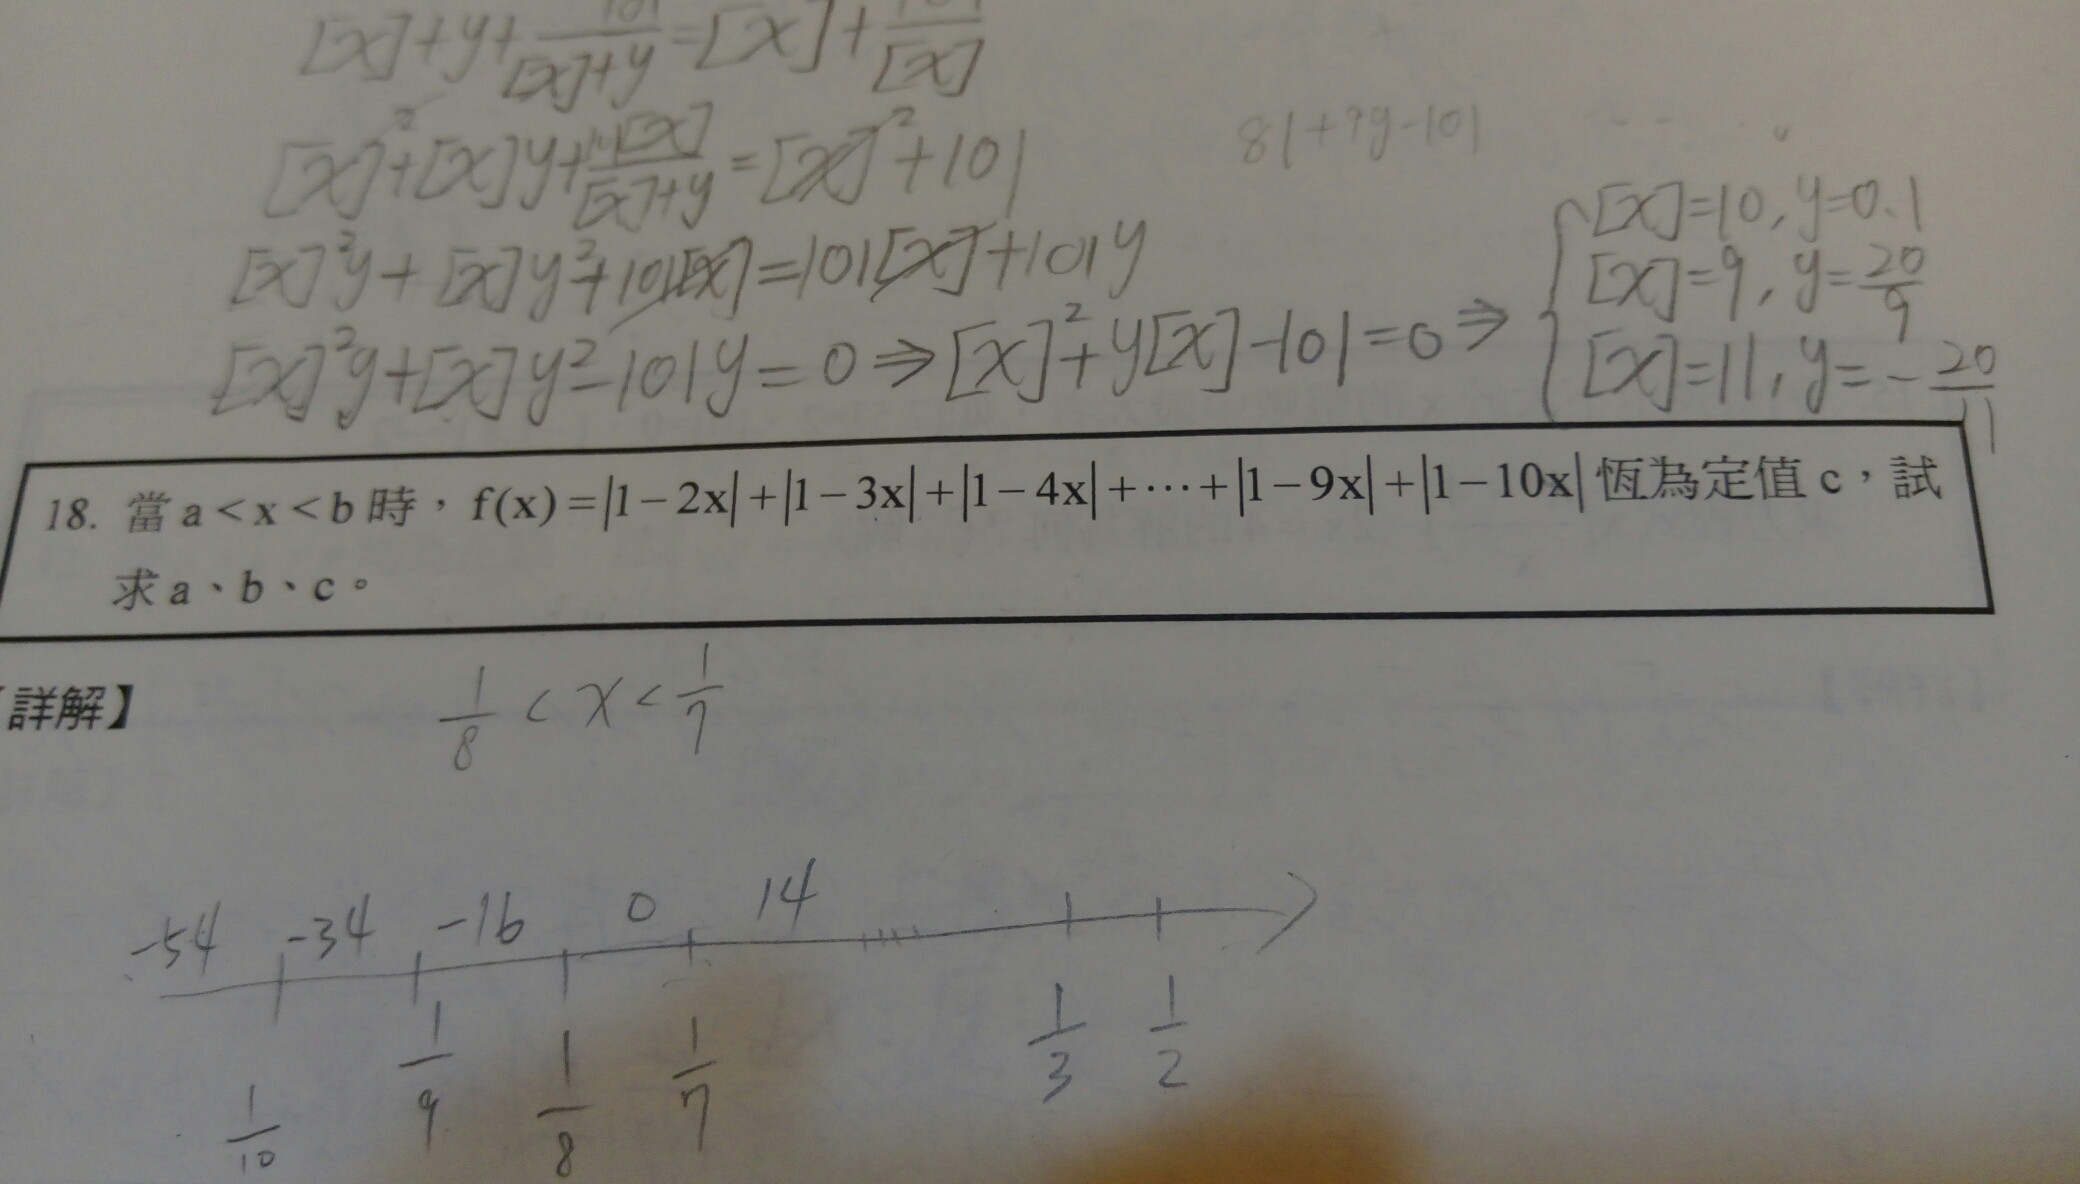 [x]+y+101/([x]+y)=[x]+101/[x]
[x]²+[x]y+101[x]/([x]+y)=[x]²+101
81+9y-101
[x]²y+[x]y²+101[x]=101[x]+101y
[x]²y+[x]y²-101y=0⇒[x]²+y[x]-101=0⇒
[x]=10,y=0.1
[x]=9,y=20/9
[x]=11,y=-20/11
18. 當 a < x < b 時,f(x) = |1-2x| + |1-3x| + |1-4x| + ⋯ + |1-9x| + |1-10x| 恆為定值 c,試
求 a、b、c。
詳解】
1/8 < x < 1/7
-54 -34 -16 0 14
1/10 1/9 1/8 1/7 1/3 1/2